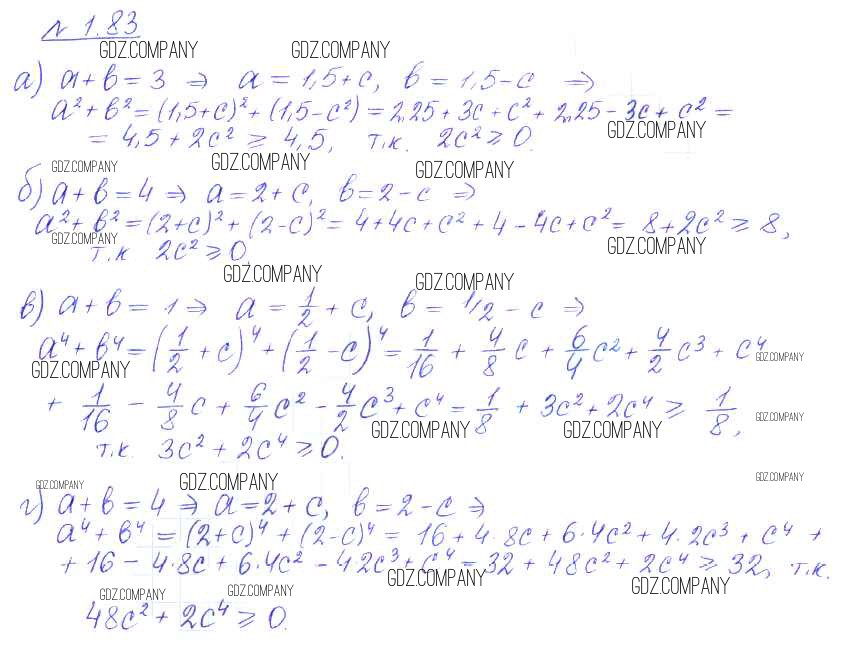 № 1.83
GDZ.COMPANY GDZ.COMPANY
а) a + b = 3 ⇒ a = 1,5 + c, b = 1,5 − c ⇒
a² + b² = (1,5+c)² + (1,5−c²) = 2,25 + 3c + c² + 2,25 − 3c + c² =
GDZ.COMPANY
= 4,5 + 2c² ≥ 4,5, т.к. 2c² ≥ 0.
GDZ.COMPANY GDZ.COMPANY GDZ.COMPANY
б) a + b = 4 ⇒ a = 2 + c, b = 2 − c ⇒
a² + b² = (2+c)² + (2−c)² = 4 + 4c + c² + 4 − 4c + c² = 8 + 2c² ≥ 8,
GDZ.COMPANY GDZ.COMPANY
т.к 2c² ≥ 0
GDZ.COMPANY GDZ.COMPANY
в) a + b = 1 ⇒ a = 1/2 + c, b = 1/2 − c ⇒
a⁴ + b⁴ = (1/2 + c)⁴ + (1/2 − c)⁴ = 1/16 + 4/8 c + 6/4 c² + 4/2 c³ + c⁴
GDZ.COMPANY GDZ.COMPANY
+ 1/16 − 4/8 c + 6/4 c² − 4/2 c³ + c⁴ = 1/8 + 3c² + 2c⁴ ≥ 1/8,
GDZ.COMPANY GDZ.COMPANY GDZ.COMPANY
т.к. 3c² + 2c⁴ ≥ 0.
GDZ.COMPANY GDZ.COMPANY GDZ.COMPANY
г) a + b = 4 ⇒ a = 2 + c, b = 2 − c ⇒
a⁴ + b⁴ = (2+c)⁴ + (2−c)⁴ = 16 + 4·8c + 6·4c² + 4·2c³ + c⁴ +
+ 16 − 4·8c + 6·4c² − 42c³ + c⁴ = 32 + 48c² + 2c⁴ ≥ 32, т.к.
GDZ.COMPANY GDZ.COMPANY
GDZ.COMPANY GDZ.COMPANY
48c² + 2c⁴ ≥ 0.